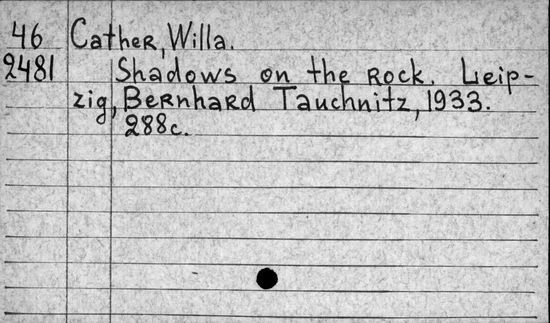 46 Cather, Willa.
2481 Shadows on the Rock. Leip-
zig, Bernhard Tauchnitz, 1933.
288c.